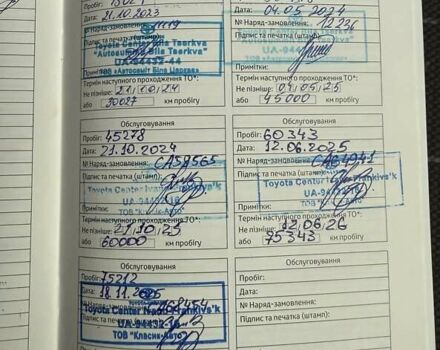 Дата: 21.10.2023
№ Наряд-замовлення:
Підпис та печатка
Toyota Center Bila Tserkva
UA-94432-44
Примітки:
Термін наступного проходження ТО*:
Не пізніше: 21.10.24
або 30027 км пробігу
Дата: 04.05.2024
№ Наряд-замовлення: 12236
Підпис та печатка (штамп):
Toyota Center Bila Tserkva
ТОВ
Термін наступного проходження ТО*:
Не пізніше: 04.05.25
або 45000 км пробігу
Обслуговування
Пробіг: 45278
Дата: 21.10.2024
№ Наряд-замовлення: CA59565
Підпис та печатка (штамп):
Toyota Center Ivano-Frankivs'k
UA-94432-16
Примітки:
ТОВ "Класик-Авто"
Термін наступного проходження ТО*:
Не пізніше: 21.10.25
або 60000 км пробігу
Обслуговування
Пробіг: 60343
Дата: 12.06.2025
№ Наряд-замовлення: CA64941
Підпис та печатка (штамп):
Toyota Center Ivano-Frankivs'k
UA-94432-16
Примітки:
ТОВ "Класик-Авто"
Термін наступного проходження ТО*:
Не пізніше: 12.06.26
або 75343 км пробігу
Обслуговування
Пробіг: 75212
Дата: 18.11.2025
Toyota Center Ivano-Frankivs'k
UA-94432-16
ТОВ "Класик-Авто"
Обслуговування
Пробіг:
Дата:
№ Наряд-замовлення:
Підпис та печатка (штамп):